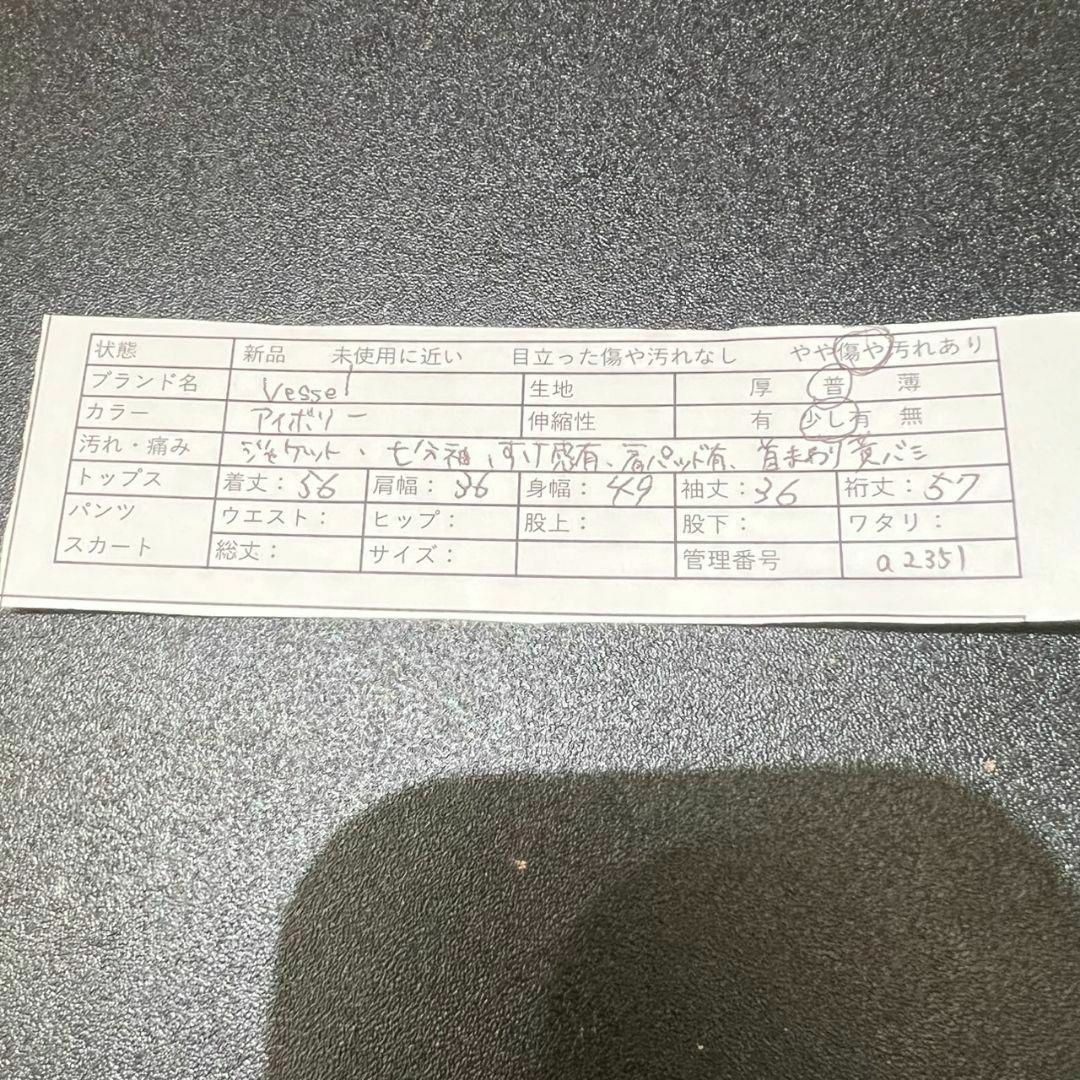 状態 新品 未使用に近い 目立った傷や汚れなし やや傷や汚れあり
ブランド名 Vessel 生地 厚 普 薄
カラー アイボリー 伸縮性 有 少し有 無
汚れ・痛み ジャケット、七分袖、すけ感有、肩パッド有、首まわり黄バミ
トップス 着丈：56 肩幅：36 身幅：49 袖丈：36 裄丈：57
パンツ ウエスト： ヒップ： 股上： 股下： ワタリ：
スカート 総丈： サイズ： 管理番号 a2351